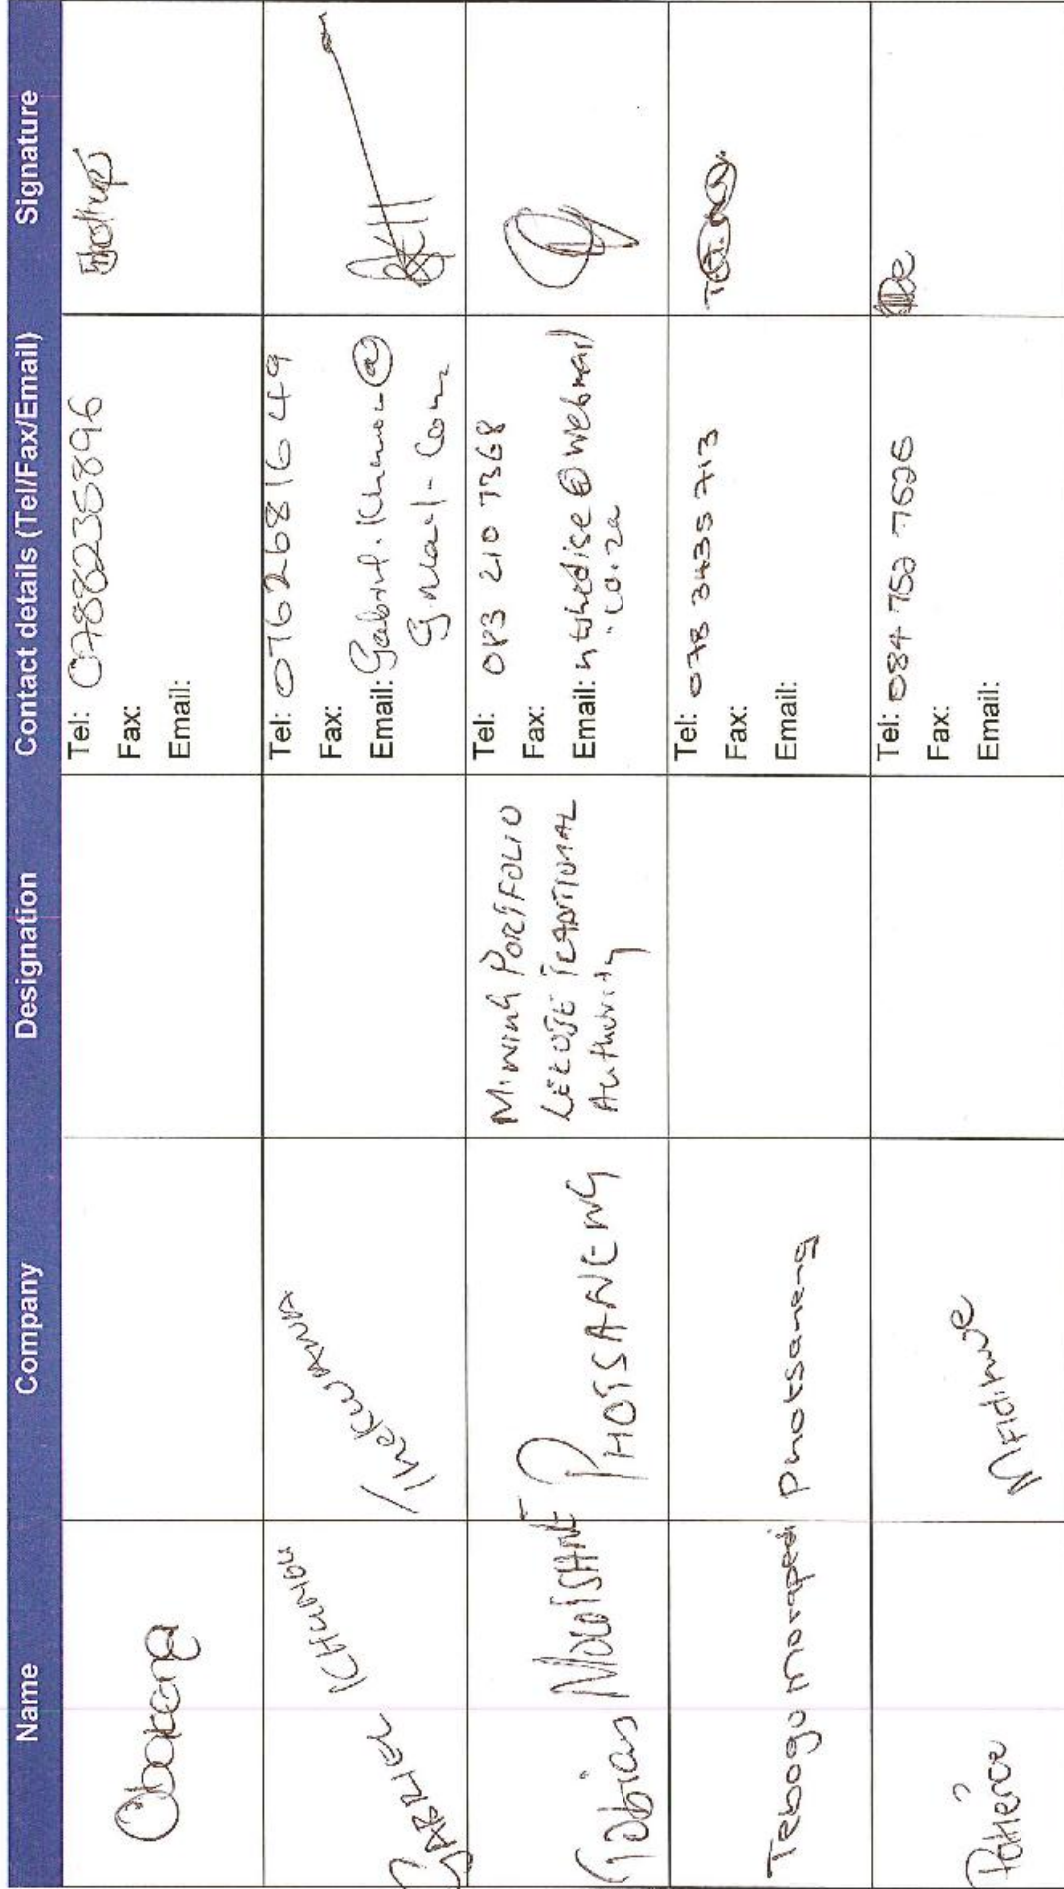 Name Company Designation Contact details (Tel/Fax/Email) Signature
Obakeng
Tel: 0788235896
Fax:
Email:
GABRIEL KHUMOU
Thekwana
Tel: 0762681649
Fax:
Email: Gabriel.Khumou@
Gmail.com
Tobias
PHOTSANENG
Mining PORTFOLIO
LEKOJE TRADITIONAL
Authority
Tel: 083 210 7368
Fax:
Email: ntshedise@webmail
.co.za
Tebogo morapedi
Photsaneng
Tel: 078 3435 713
Fax:
Email:
Patience
Mfidikwe
Tel: 084 752 7626
Fax:
Email: